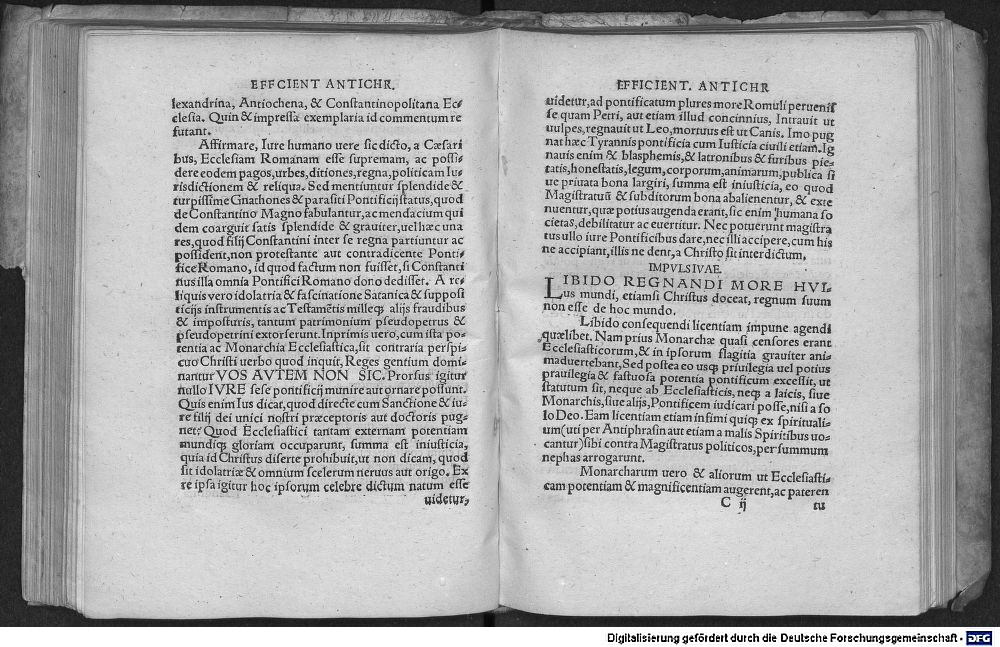 EFFCIENT ANTICHR.
lexandrina, Antiochena, & Constantinopolitana Ec⸗
clesia. Quin & impressa exemplaria id commentum re
futant.
Affirmare, Iure humano uere sic dicto, a Cæsari
bus, Ecclesiam Romanam esse supremam, ac possi⸗
dere eodem pagos, urbes, ditiones, regna, politicam Iu⸗
risdictionem & reliqua. Sed mentiuntur splendide &
turpissime Gnathones & parasiti Pontificij status, quod
de Constantino Magno fabulantur, ac mendacium qui
dem coarguit satis splendide & grauiter, uel hæc una
res, quod filij Constantini inter se regna partiuntur ac
possident, non protestante aut contradicente Ponti⸗
fice Romano, id quod factum non fuisset, si Constanti
nus illa omnia Pontifici Romano dono dedisset. A re⸗
liquis vero idolatria & fascinatione Satanica & supposi
ticijs instrumentis ac Testamẽtis milleqꝫ alijs fraudibus
& imposturis, tantum patrimonium pseudopetrus &
pseudopetrini extorserunt. Inprimis uero, cum ista po⸗
tentia ac Monarchia Ecclesiastica, sit contraria perspi⸗
cuo Christi uerbo quod inquit, Reges gentium domi⸗
nantur VOS AVTEM NON SIC. Prorsus igitur
nullo IVRE sese pontificij munire aut ornare possunt.
Quis enim Ius dicat, quod directe cum Sanctione & iu⸗
re filij dei unici nostri præceptoris aut doctoris pug⸗
net? Quod Ecclesiastici tantam externam potentiam
mundiqꝫ gloriam occuparunt, summa est iniusticia,
quia id Christus diserte prohibuit, ut non dicam, quod
sit idolatriæ & omnium scelerum neruus aut origo. Ex
re ipsa igitur hoc ipsorum celebre dictum natum esse
uidetur,
EFFICIENT. ANTICHR
uidetur, ad pontificatum plures more Romuli peruenis
se quam Petri, aut etiam illud concinnius, Intrauit ut
uulpes, regnauit ut Leo, mortuus est ut Canis. Imo pug
nat hæc Tyrannis pontificia cum Iusticia ciuili etiam. Ig
nauis enim & blasphemis, & latronibus & furibus pie⸗
tatis, honestatis, legum, corporum, animarum, publica si
ue priuata bona largiri, summa est iniusticia, eo quod
Magistratuũ & subditorum bona abalienentur, & exte
nuentur, quæ potius augenda erant, sic enim humana so
cietas, debilitatur ac euertitur. Nec potuerunt magistra
tus ullo iure Pontificibus dare, nec illi accipere, cum his
ne accipiant, illis ne dent, a Christo sit interdictum.
IMPVLSIVAE.
LIBIDO REGNANDI MORE HVI⸗
us mundi, etiamsi Christus doceat, regnum suum
non esse de hoc mundo.
Libido consequendi licentiam impune agendi
quælibet. Nam prius Monarchæ quasi censores erant
Ecclesiasticorum, & in ipsorum flagitia grauiter ani⸗
maduertebant, Sed postea eo usqꝫ priuilegia uel potius
prauilegia & fastuosa potentia pontificum excessit, ut
statutum sit, neque ab Ecclesiasticis, neqꝫ a laicis, siue
Monarchis, siue alijs, Pontificem iudicari posse, nisi a so
lo Deo. Eam licentiam etiam infimi quiqꝫ ex spirituali⸗
um (uti per Antiphrasin aut etiam a malis Spiritibus uo⸗
cantur) sibi contra Magistratus politicos, per summum
nephas arrogarunt.
Monarcharum uero & aliorum ut Ecclesiasti⸗
cam potentiam & magnificentiam augerent, ac pateren
C ij tu
Digitalisierung gefördert durch die Deutsche Forschungsgemeinschaft - DFG